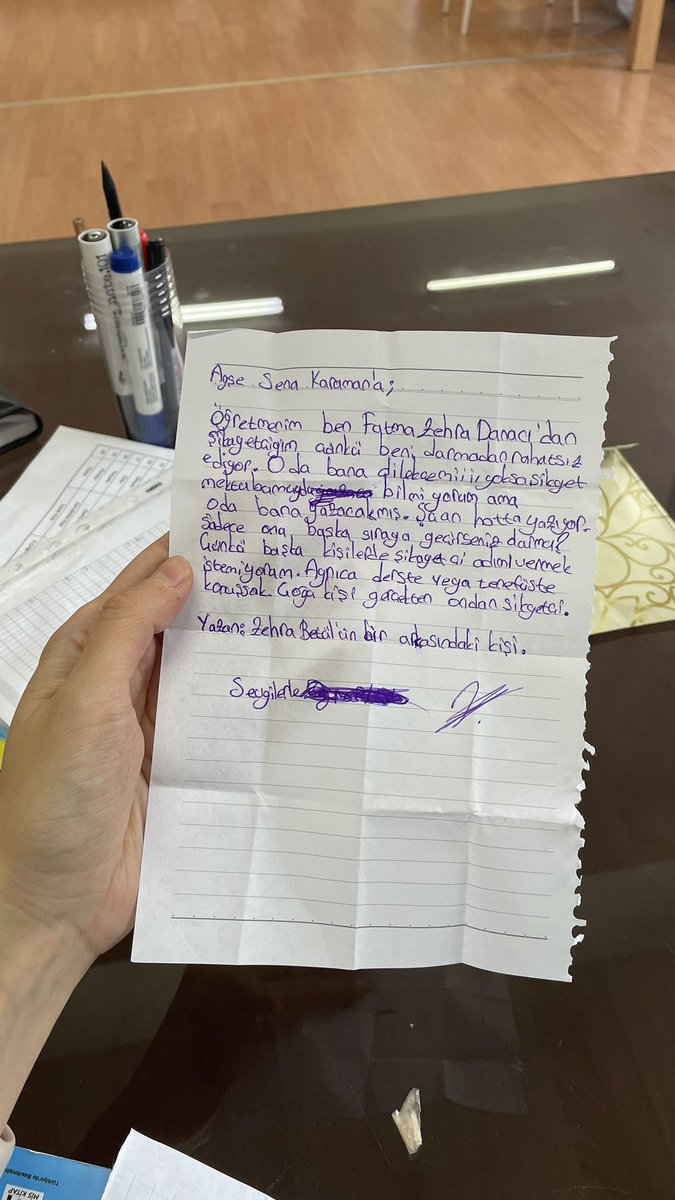 note.101
Ayşe Sena Karaman'a;
Öğretmenim ben Fatma Zehra Danacı'dan
Şikayetciyim çünkü beni durmadan rahatsız
ediyor. O da bana dilekcemi yoksa şikayet
mektubumuydu bilmiyorum ama
oda bana yazacakmış. Şuan hatta yazıyor.
Sadece ona başka sıraya geçirseniz
Çünkü başka kişilerde şikayetci adımı vermek
istemiyorum. Ayrıca derste veya tenefüste
konuşsak. Çoğa kişi gerçekten ondan şikyetçi.
Yazan: Zehra Betül'ün bir arkasındaki kişi.
Sevgilerle
Türkiye'de Basılmıştır
MİS KİTAP